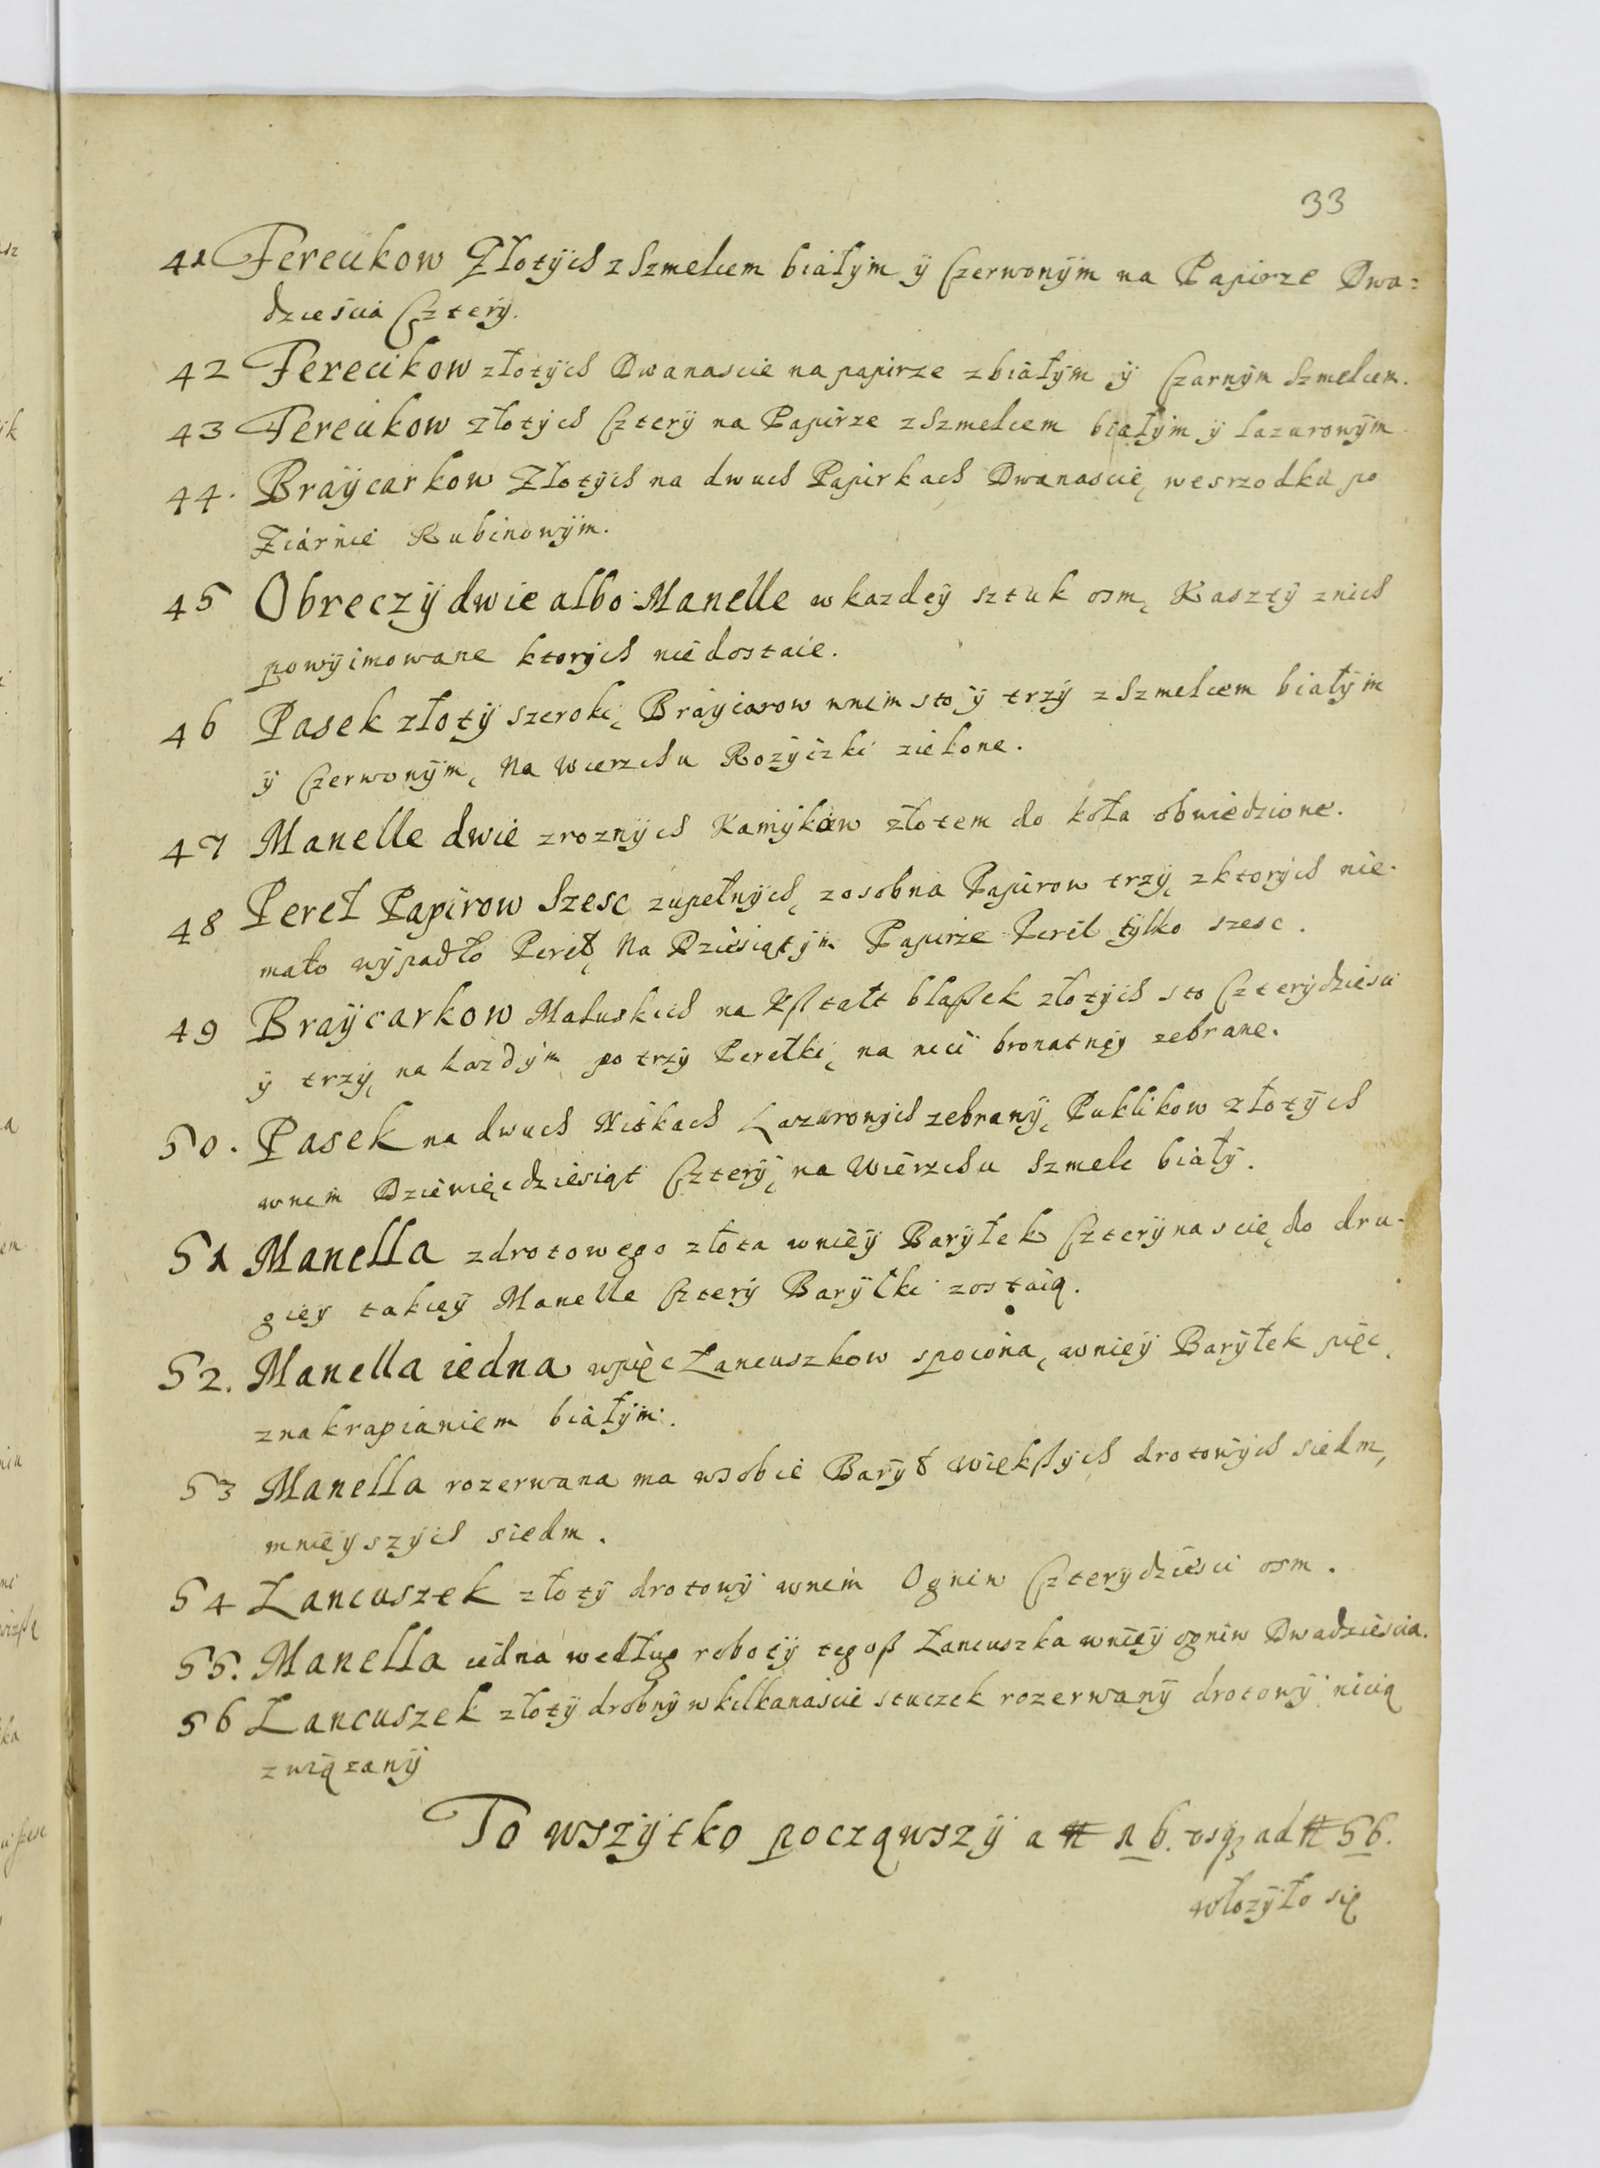 33
41 Ferecikow Złotÿch z Szmelcem białÿm ÿ Czerwonÿm na Papirze Dwa=
dziescia Czterÿ.
42 Ferecikow złotÿch Dwanascie na papirze z białÿm ÿ Czarnÿm Szmelcem.
43 Ferecikow złotÿch Czterÿ na Papirze z Szmelcem białÿm ÿ lazurowÿm
44. Braÿcarkow Złotÿch na dwuch Papirkach Dwanascie, wesrzodku po
Ziárnie Rubinowÿm.
45 Obreczÿ dwie albo Manelle w kazdeÿ sztuk osm, Kasztÿ znich
powÿimowane ktorÿch nie dostaie.
46 Pasek złotÿ szeroki, Braÿcarow wnim sto ÿ trzÿ z Szmelcem białÿm
ÿ Czerwonÿm, Na Wierzchu Rozÿczki zielone.
47 Manelle dwie z roznÿch Kamÿkow złotem do koła obwiedzione.
48 Pereł Papirow Szesc zupełnÿch, zosobna Papirow trzÿ, z ktorÿch nie-
mało wÿpadło Pereł, Na Dziesiątÿm Papirze Pereł tÿlko szesc.
49 Braÿcarkow Maluskich na Kßtałt blaßek złotÿch sto Czterÿdziesci
ÿ trzÿ, na kazdÿm po trzÿ Perełki, na nici bronatneÿ zebrane.
50. Pasek na dwuch Nitkach Lazurowÿch zebranÿ, Puklikow złotÿch
wnim Dziewięcdziesiąt Czterÿ, na Wierzchu Szmelc białÿ.
51 Manella z drotowego złota wnieÿ Barÿłek Czterÿnascie, do dru-
gieÿ takieÿ Manelle Czterÿ Barÿłki zostaią.
52. Manella iedna w pięc Łancuszkow spoiona, wnieÿ Barÿłek pięc,
z nakrapianiem białÿm.
53 Manella rozerwana ma w sobie Barÿł więkßÿch drotowÿch siedm,
mnieÿszÿch siedm.
54 Łancuszek złotÿ drotowÿ wnim Ogniw Czterÿdziesci osm.
55. Manella iedna według robotÿ tegoß Łancuszka wnieÿ ogniw Dwadziescia.
56 Łancuszek złotÿ drobnÿ w kilkanascie sztuczek rozerwanÿ drotowÿ nicią
związanÿ
To wszÿtko począwszÿ a # 16. usq ad # 56.
włozÿło się